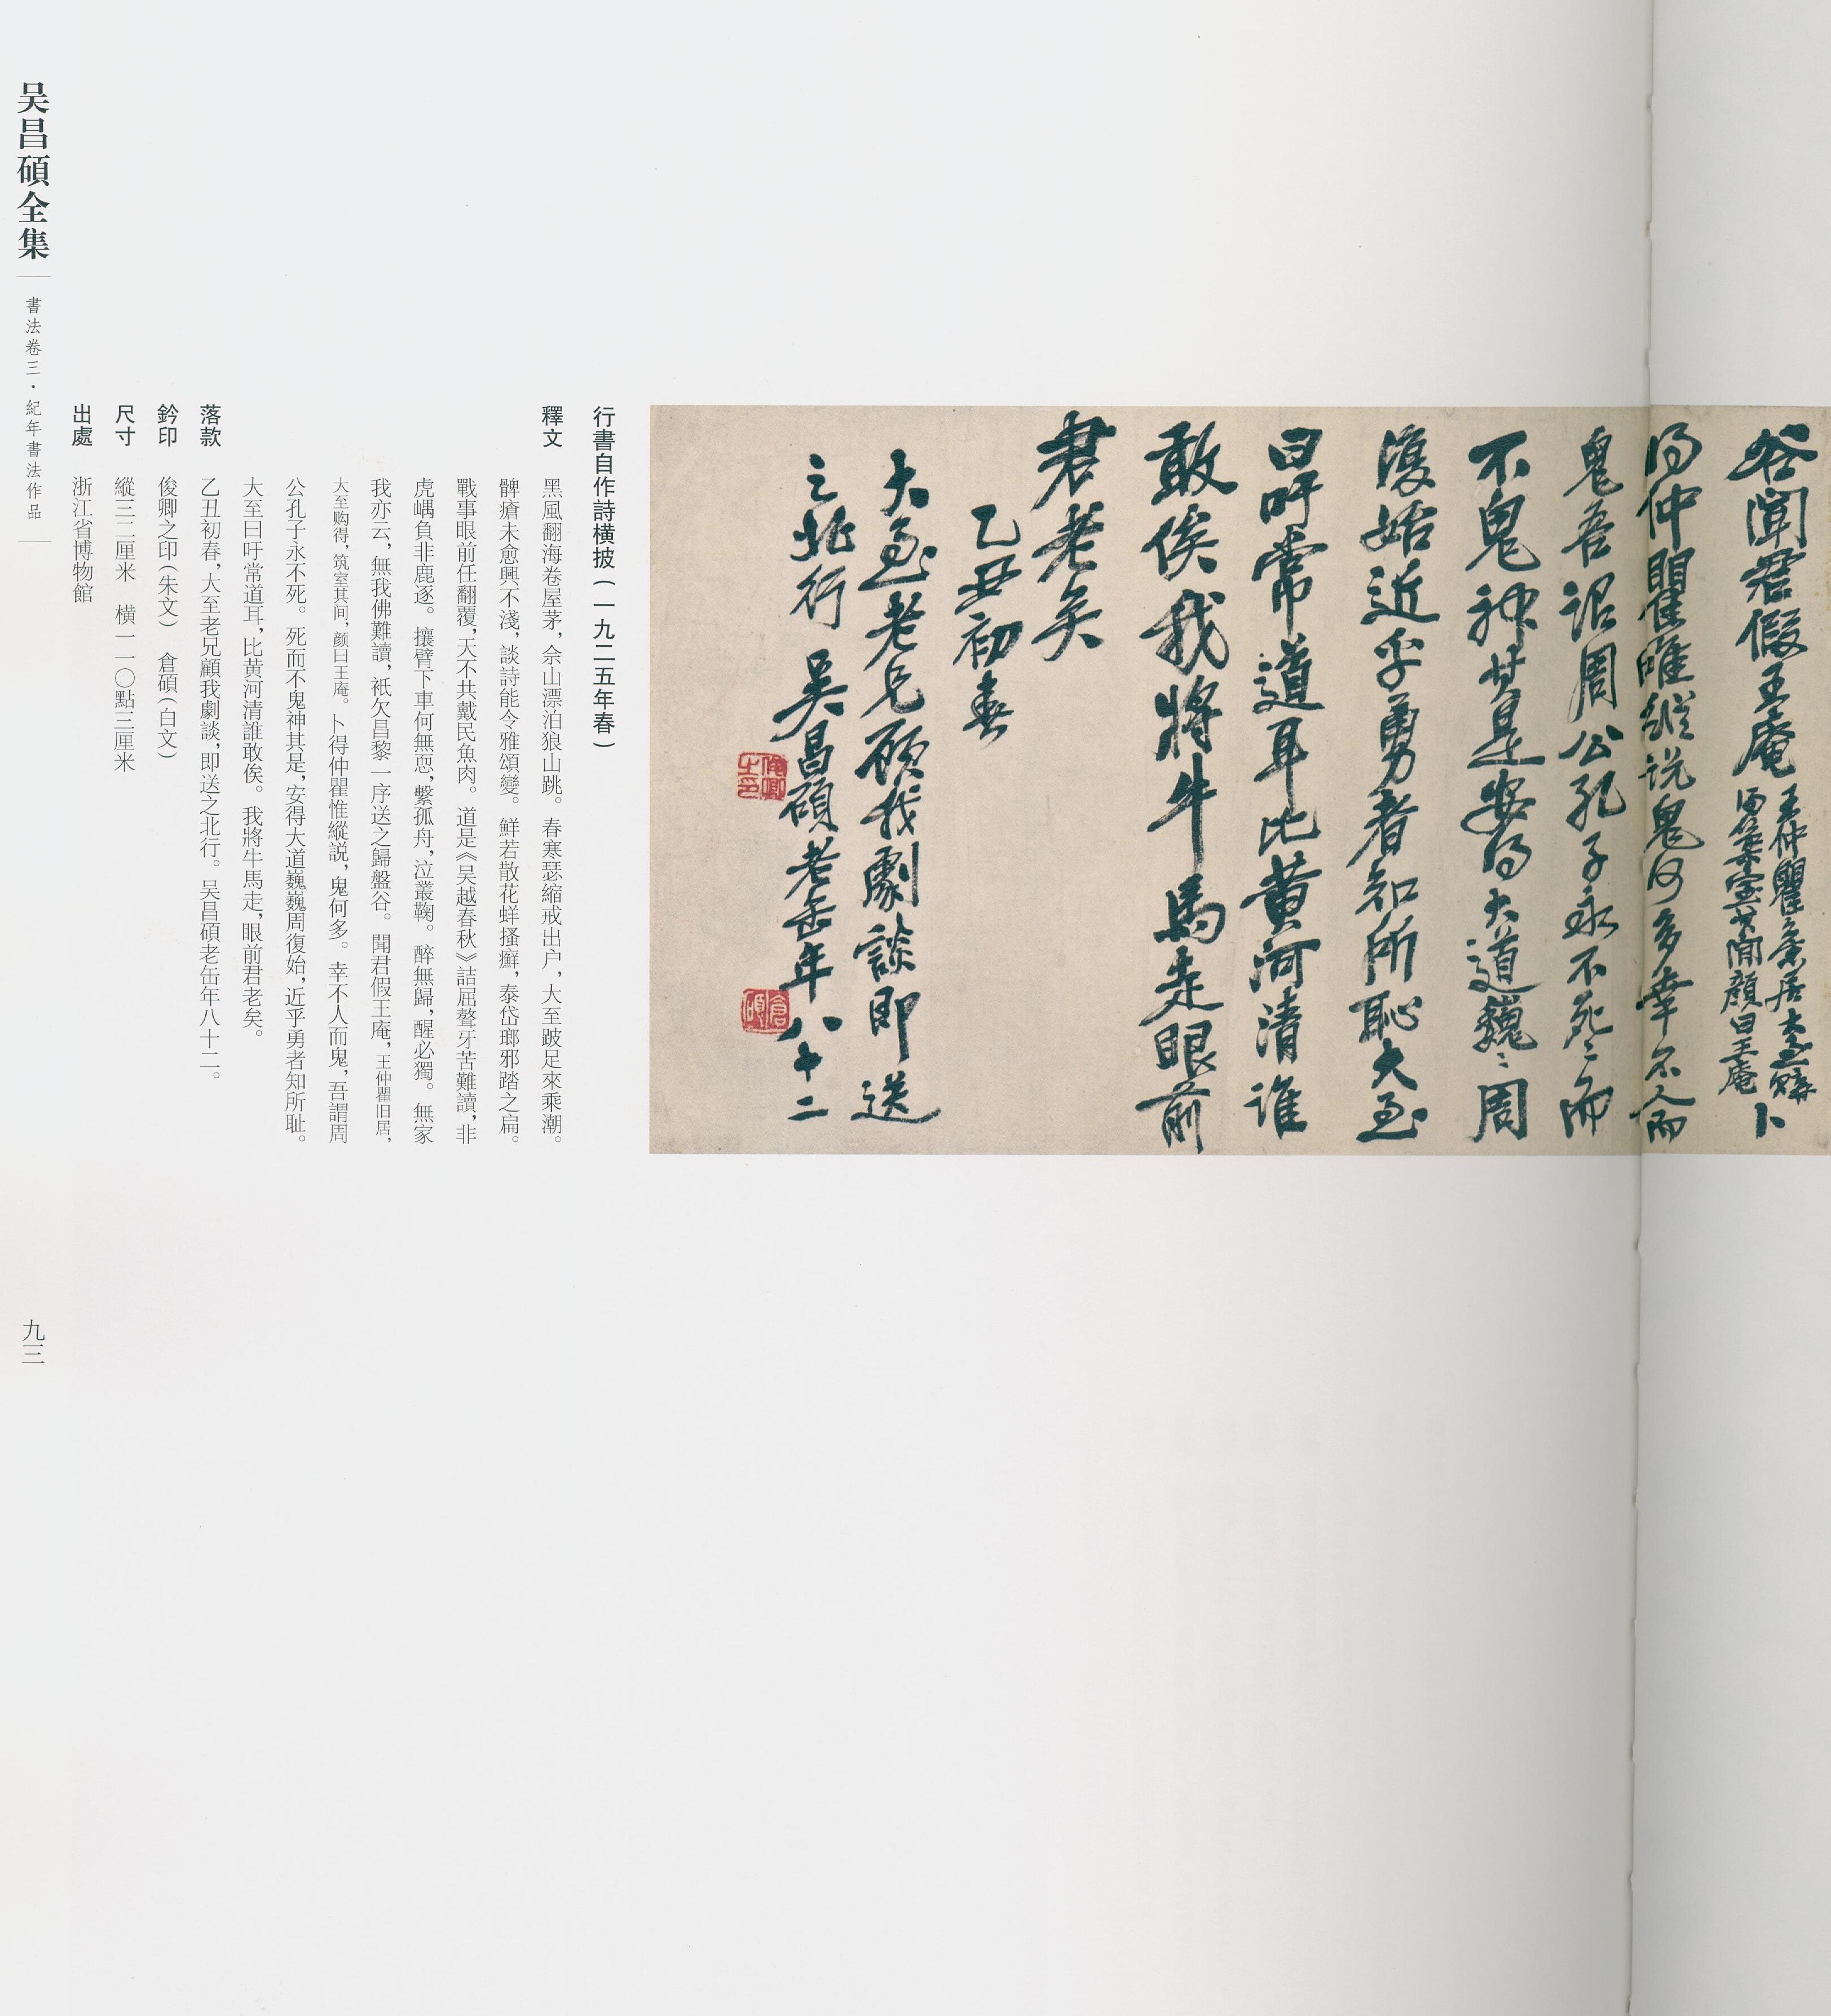 谷聞君假王庵
王仲瞿舊居大至購
得築室其間顏曰王庵
卜
得仲瞿唯縱说鬼何多幸不人而
鬼吾謂周公孔子永不死〻而
不鬼神其是安得大道巍〻周
復始近乎勇者知所恥大至
曰吁常道耳比黄河清谁
敢俟我將牛馬走眼前
君老矣
乙丑初春
大至老兄顧我劇談即送
之北行 吴昌碩老缶年八十二
俊卿之印
倉碩
行書自作詩横披(一九二五年春)
釋文 黑風翻海卷屋茅，佘山漂泊狼山跳。春寒瑟縮戒出户，大至跛足來乘潮。
髀瘡未愈興不淺，談詩能令雅頌變。鮮若散花蛘搔癬，泰岱瑯邪踏之扁。
戰事眼前任翻覆，天不共戴民魚肉。道是《吴越春秋》詰屈聱牙苦難讀，非
虎嵎負非鹿逐。攘臂下車何無恧，繫孤舟，泣叢鞠。醉無歸，醒必獨。無家
我亦云，無我佛難讀，祇欠昌黎一序送之歸盤谷。聞君假王庵，王仲瞿旧居，
大至购得，筑室其间，颜曰王庵。卜得仲瞿惟縱説，鬼何多。幸不人而鬼，吾謂周
公孔子永不死。死而不鬼神其是，安得大道巍巍周復始，近乎勇者知所耻。
大至曰吁常道耳，比黄河清誰敢俟。我將牛馬走，眼前君老矣。
落款 乙丑初春，大至老兄顧我劇談，即送之北行。吴昌碩老缶年八十二。
鈐印 俊卿之印(朱文) 倉碩(白文)
尺寸 縱三二厘米 横一一〇點三厘米
出處 浙江省博物館
吴昌碩全集
書法卷三·紀年書法作品
九三